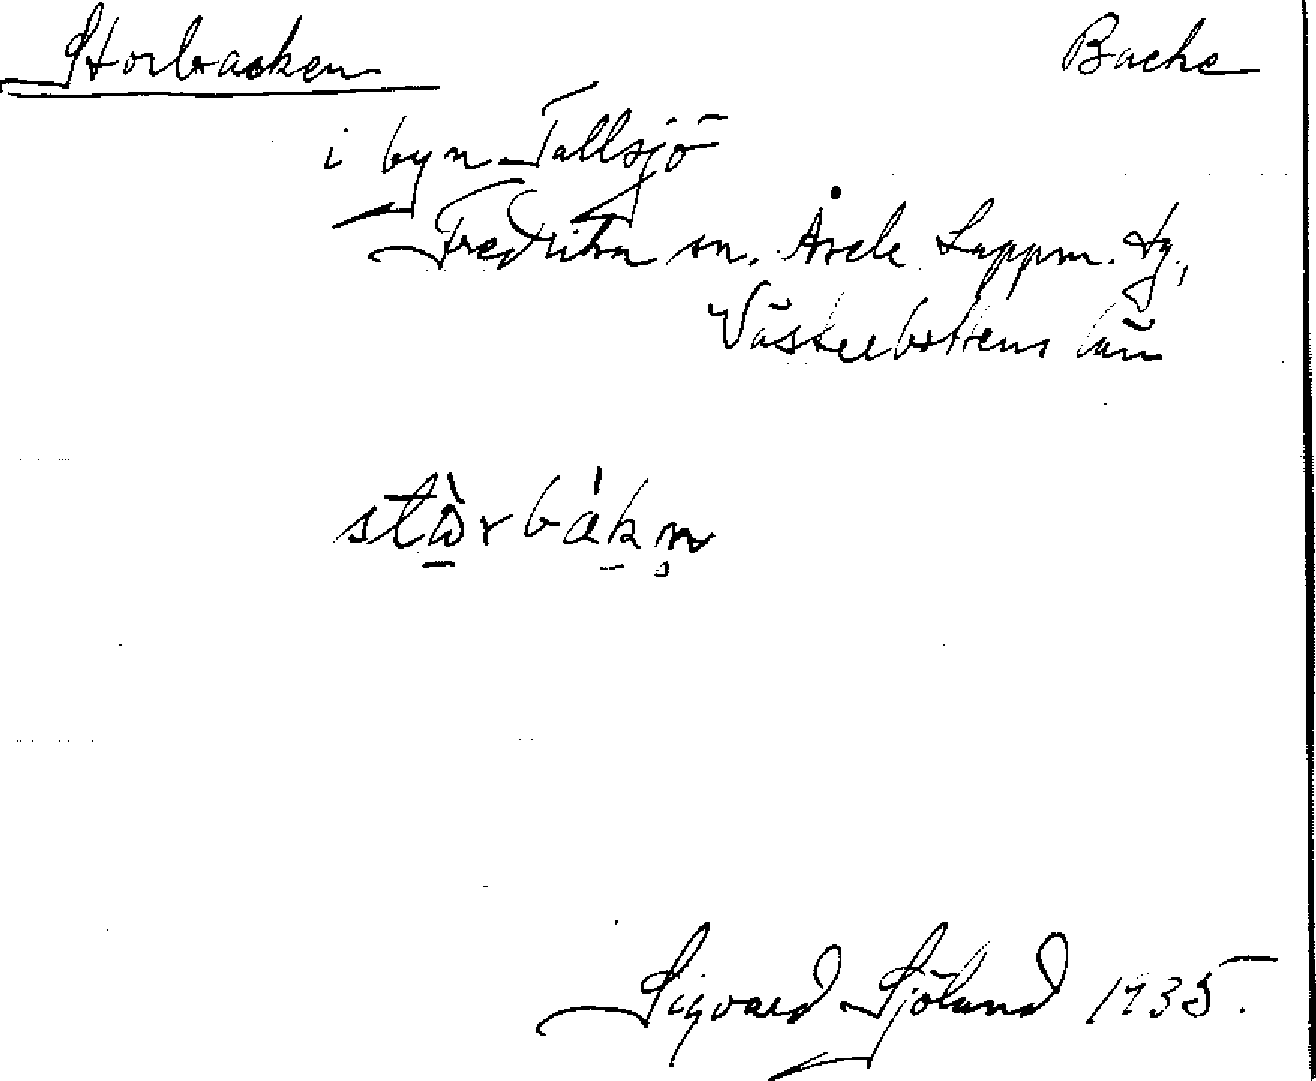 Storbacken Backe
i byn Tallsjö
Fredrika sn. Åsele Lappm. tg.,
Västerbottens län
stɷ̀rbákn̥
Sigvard Sjöland 1935.